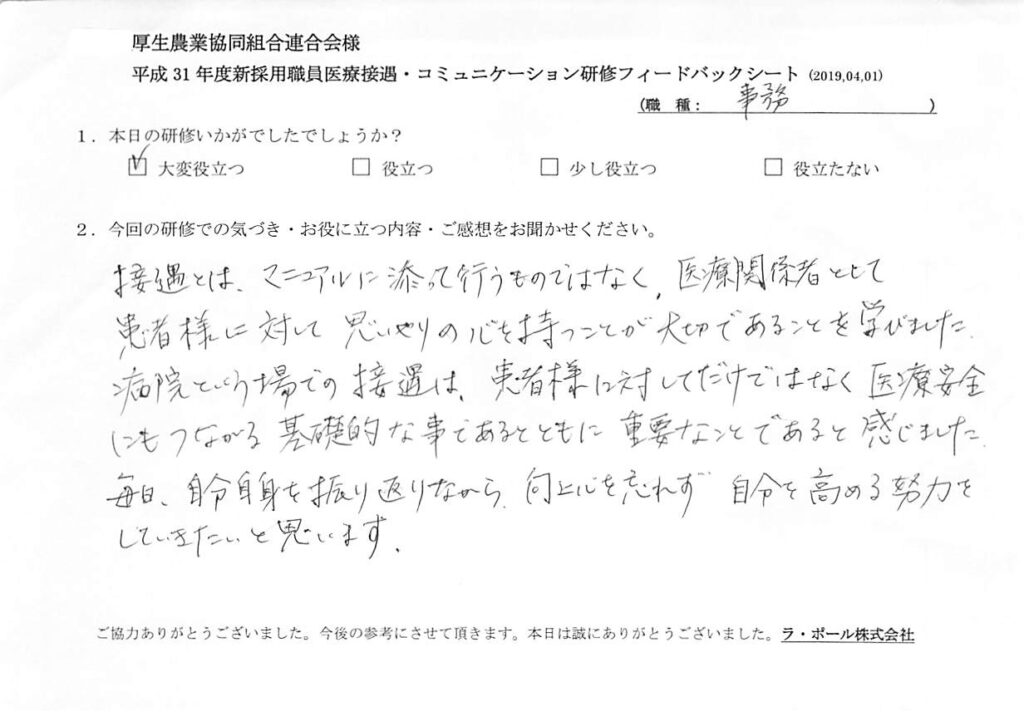 厚生農業協同組合連合会様
平成31年度新採用職員医療接遇・コミュニケーション研修フィードバックシート (2019,04,01)
(職 種: 事務 )
1. 本日の研修いかがでしたでしょうか?
☑ 大変役立つ □ 役立つ □ 少し役立つ □ 役立たない
2. 今回の研修での気づき・お役に立つ内容・ご感想をお聞かせください。
接遇とは、マニュアルに添って行うものではなく、医療関係者として
患者様に対して思いやりの心を持つことが大切であることを学びました。
病院という場での接遇は、患者様に対してだけではなく医療安全
にもつながる基礎的な事であるとともに重要なことであると感じました。
毎日、自分自身を振り返りながら、向上心を忘れず自分を高める努力を
していきたいと思います。
ご協力ありがとうございました。今後の参考にさせて頂きます。本日は誠にありがとうございました。ラ・ポール株式会社